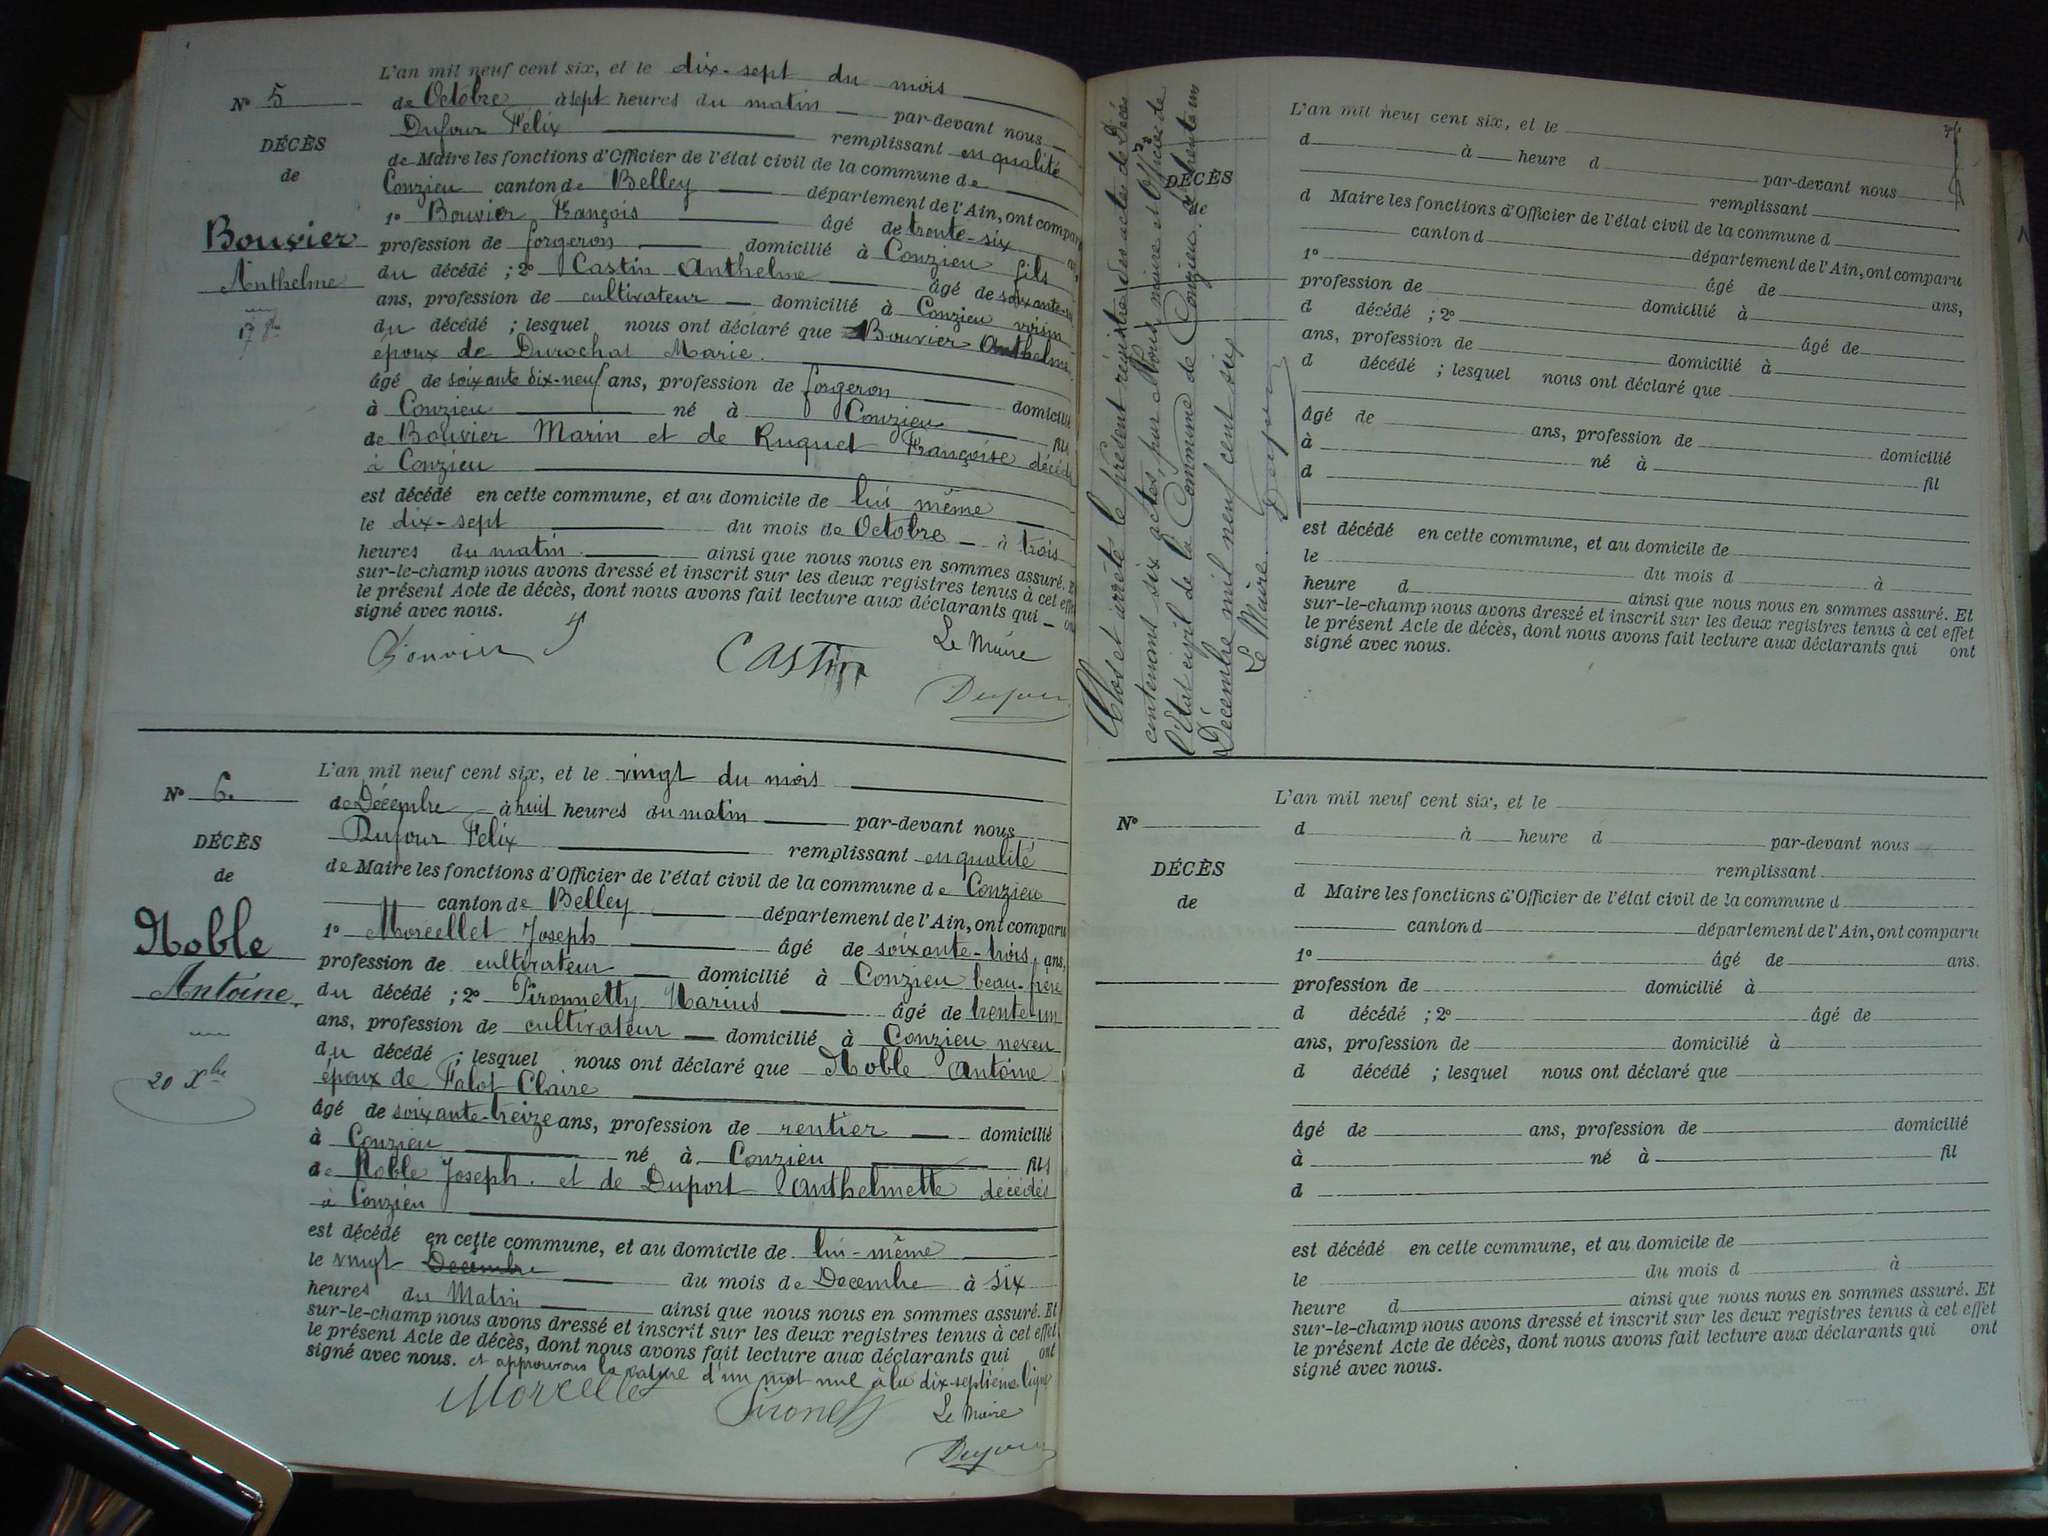 L'an mil neuf cent six, et le dix-sept du mois
N° 5
de Octobre à sept heures du matin par-devant nous
Dufour Felix remplissant en qualité
DÉCÈS
de Maire les fonctions d'Officier de l'état civil de la commune de
de
Conzieu canton de Belley département de l'Ain, ont comparu
1° Bouvier François âgé de trente-six
Bouvier
profession de forgeron domicilié à Conzieu fils
Anthelme
du décédé ; 2° Castin Anthelme âgé de soixante
ans, profession de cultivateur domicilié à Conzieu voisin
17 8bre
du décédé ; lesquel nous ont déclaré que Bouvier Anthelme
époux de Durochat Marie
âgé de soixante dix-neuf ans, profession de forgeron domicilié
à Conzieu né à Conzieu fils
de Bouvier Marin et de Ruquet Françoise décédés
à Conzieu
est décédé en cette commune, et au domicile de lui même
le dix-sept du mois de Octobre à trois
heures du matin ainsi que nous nous en sommes assuré. Et
sur-le-champ nous avons dressé et inscrit sur les deux registres tenus à cet effet
le présent Acte de décès, dont nous avons fait lecture aux déclarants qui ont
signé avec nous.
Bouvier
CASTIN
Le Maire
Dufour
L'an mil neuf cent six, et le vingt du mois
N° 6
de Décembre à huit heures du matin par-devant nous
Dufour Felix remplissant en qualité
DÉCÈS
de Maire les fonctions d'Officier de l'état civil de la commune de Conzieu
de
canton de Belley département de l'Ain, ont comparu
Noble
1° Morcellet Joseph âgé de soixante-trois ans,
profession de cultivateur domicilié à Conzieu beau-frère
Antoine
du décédé ; 2° Pironnetty Marius âgé de trente-un
ans, profession de cultivateur domicilié à Conzieu neveu
du décédé ; lesquel nous ont déclaré que Noble Antoine
20 Xbre
époux de Falot Claire
âgé de soixante-treize ans, profession de rentier domicilié
à Conzieu né à Conzieu fils
de Noble Joseph et de Duport Anthelmette décédés
à Conzieu
est décédé en cette commune, et au domicile de lui-même
le vingt Decembre du mois de Decembre à six
heures du Matin ainsi que nous nous en sommes assuré. Et
sur-le-champ nous avons dressé et inscrit sur les deux registres tenus à cet effet
le présent Acte de décès, dont nous avons fait lecture aux déclarants qui ont
signé avec nous. et approuvons la rature d'un mot nul à la dix-septième ligne
Morcellet
Le Maire
Dufour
Clos et arrêté le présent registre des actes de Décès
contenant six actes, par Nous, maire et Officier de
l'Etat civil de la Commune de Conzieu, le trente un
Décembre mil neuf cent six
Le Maire
Dufour
DÉCÈS
de
L'an mil neuf cent six, et le
d à heure d par-devant nous
remplissant
d Maire les fonctions d'Officier de l'état civil de la commune d
canton d département de l'Ain, ont comparu
1° âgé de ans,
profession de domicilié à
d décédé ; 2° âgé de
ans, profession de domicilié à
d décédé ; lesquel nous ont déclaré que
âgé de ans, profession de domicilié
à né à fil
d
est décédé en cette commune, et au domicile de
le du mois d à
heure d ainsi que nous nous en sommes assuré. Et
sur-le-champ nous avons dressé et inscrit sur les deux registres tenus à cet effet
le présent Acte de décès, dont nous avons fait lecture aux déclarants qui ont
signé avec nous.
L'an mil neuf cent six, et le
N°
d à heure d par-devant nous
remplissant
DÉCÈS
d Maire les fonctions d'Officier de l'état civil de la commune d
de
canton d département de l'Ain, ont comparu
1° âgé de ans.
profession de domicilié à
d décédé ; 2° âgé de
ans, profession de domicilié à
d décédé ; lesquel nous ont déclaré que
âgé de ans, profession de domicilié
à né à fil
d
est décédé en cette commune, et au domicile de
le du mois d à
heure d ainsi que nous nous en sommes assuré. Et
sur-le-champ nous avons dressé et inscrit sur les deux registres tenus à cet effet
le présent Acte de décès, dont nous avons fait lecture aux déclarants qui ont
signé avec nous.